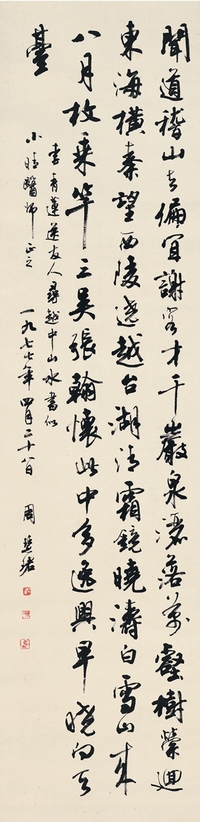 聞道稽山去偏宜謝客才千巖泉灑落萬壑樹縈迴
東海橫秦望西陵遶越台湖清霜鏡曉濤白雪山來
八月枚乘筆三吳張翰懷此中多逸興早晚向天
臺
青蓮送友人尋越中山水書似
小 醫師正之 一九七 年四月二十八日 周慧珺